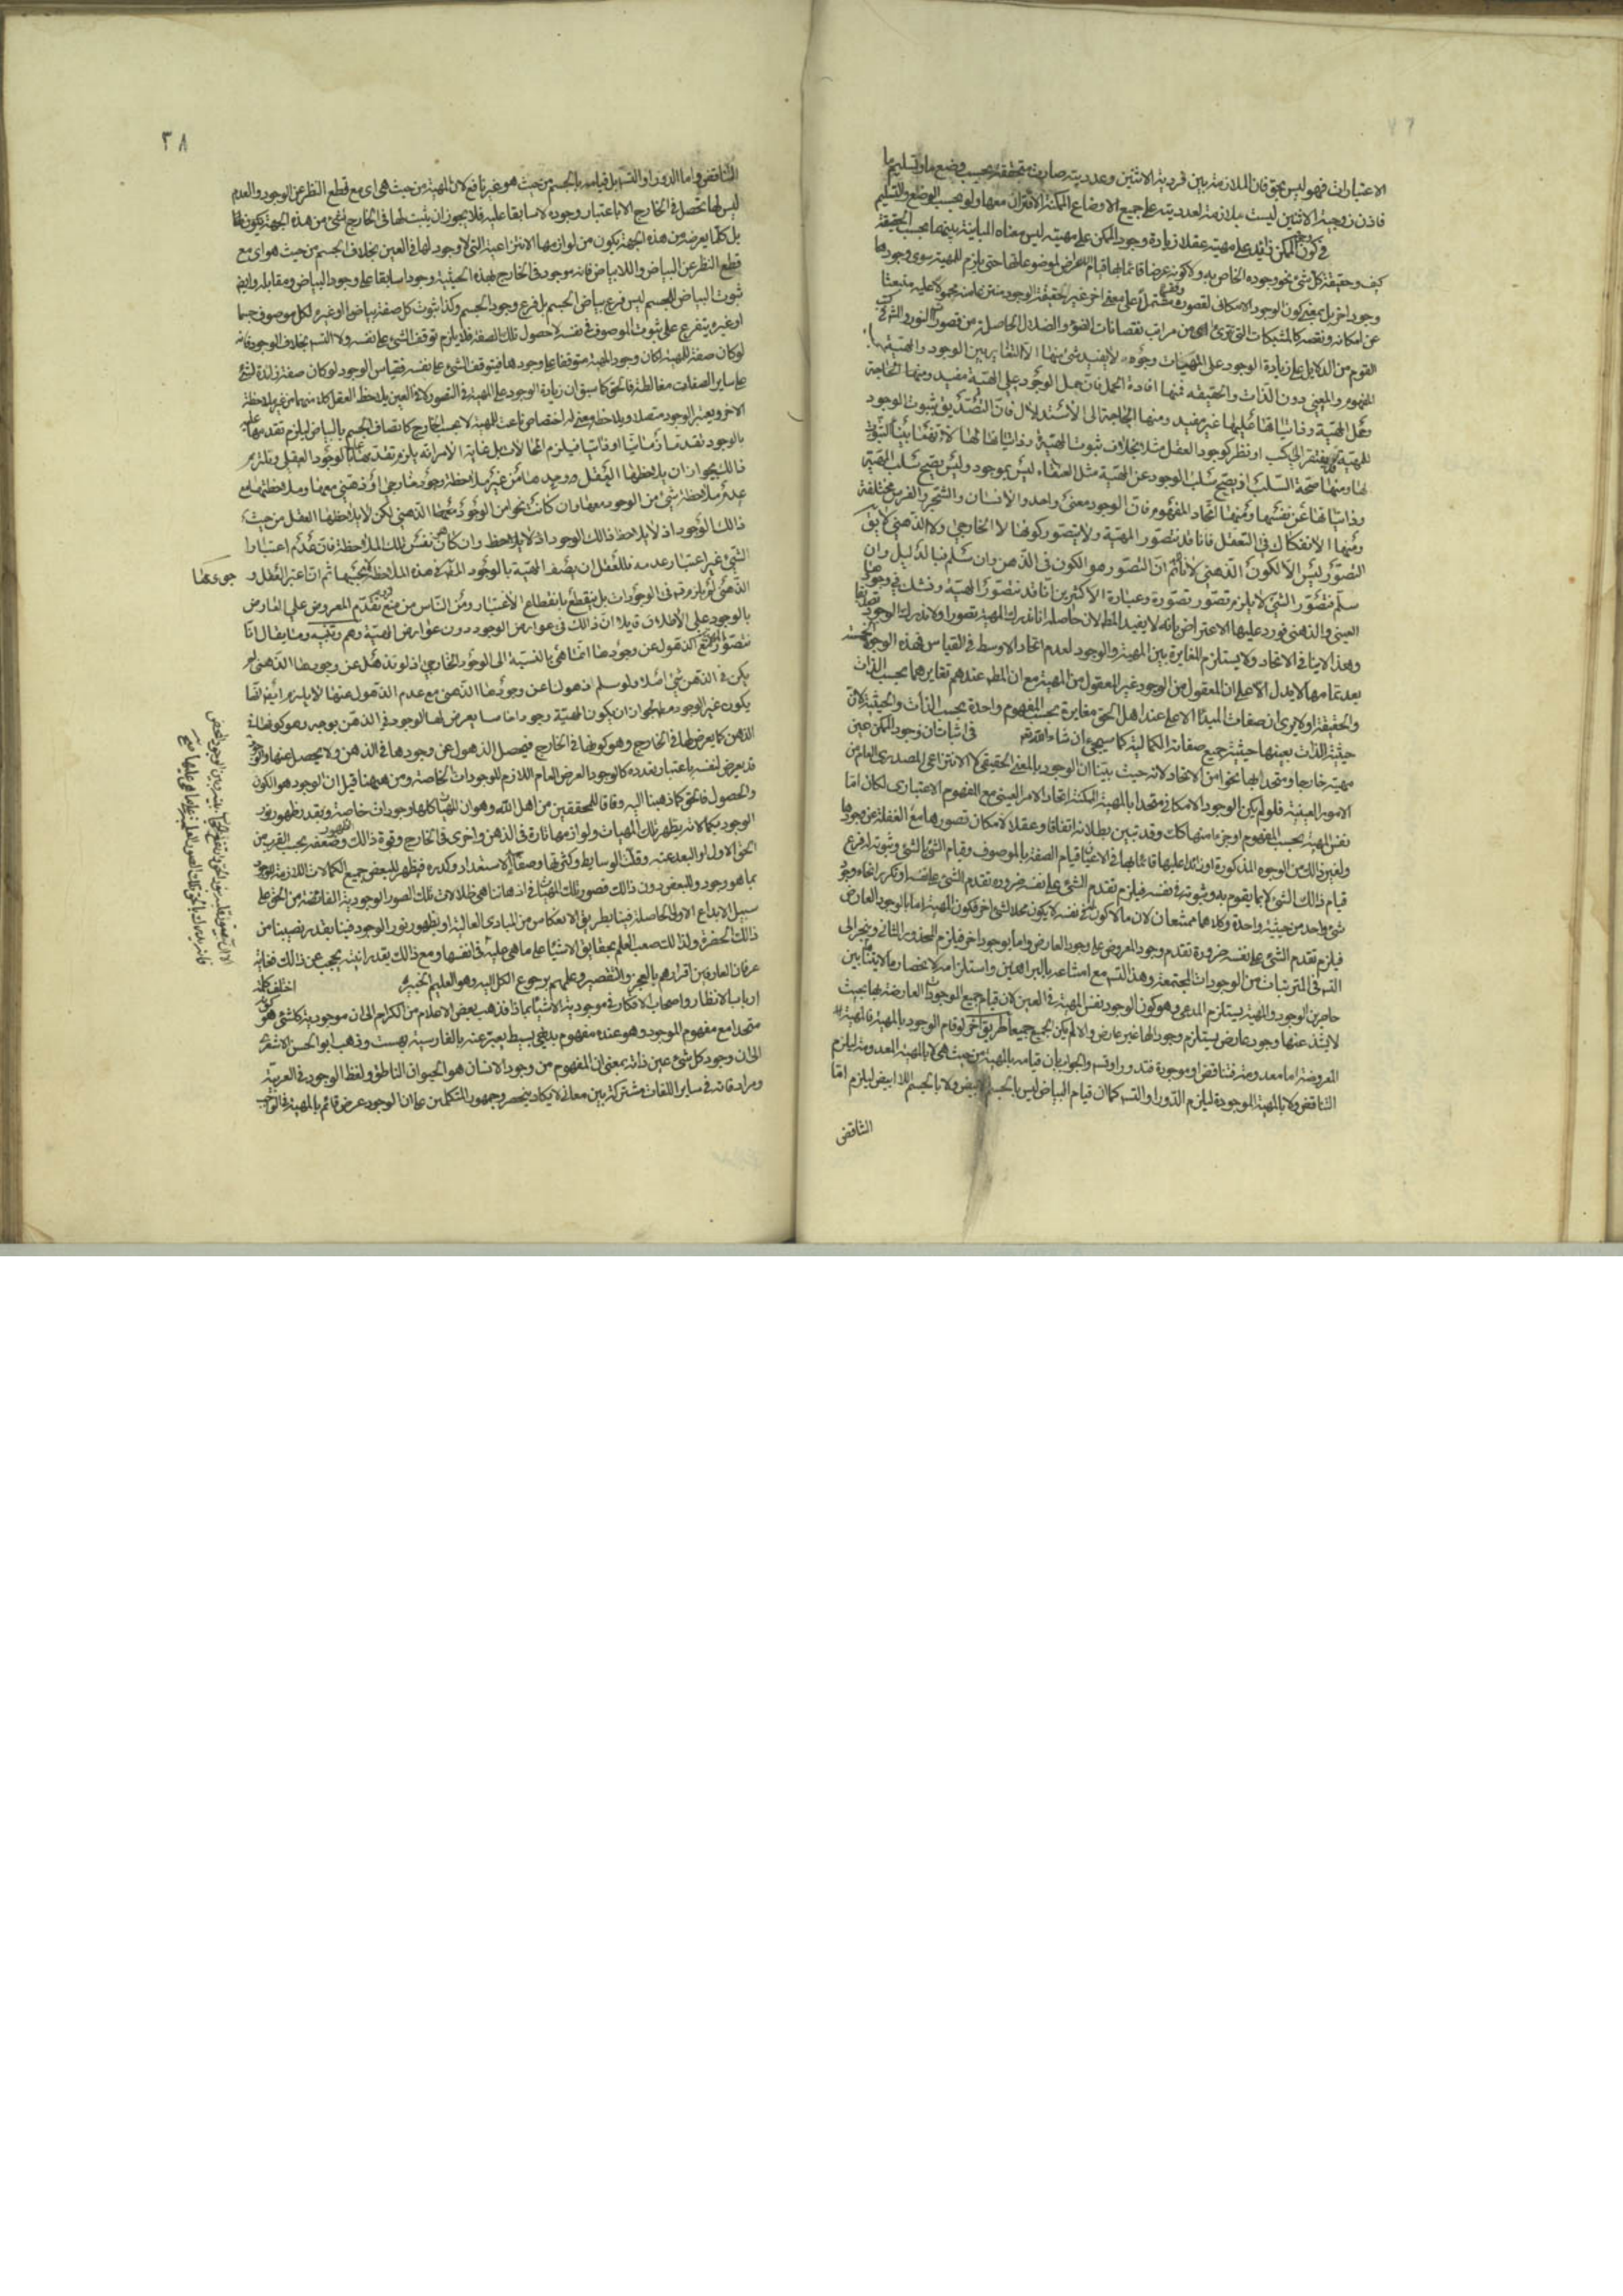 الاعتبارات فهو ليس بحق فان الملازمة بين فردية الاثنين وعدديته صادقة متحققة بحسب وضع ما وتسليم ما
فاذن زوجية الاثنين ليست ملازمة لعدديته على جميع الاوضاع الممكنة الاقتران معها ولو بحسب الوضع والتسليم
في كون وجود الممكن زائدا على مهيته عقلا زيادة وجود الممكن على مهيته ليس معناه المباينة بينهما بحسب الحقيقة
كيف وحقيقة كل شئ نحو وجوده الخاص به ولا كونه عرضا قائما بها قيام الاعراض لموضوعاتها حتى يلزم للمهية سوى وجودها
وجود اخر بل بمعنى كون الوجود الامكاني لقصوره وفقره مشتملا على معنى اخر غير حقيقة الوجود منتزعا منه محمولا عليه منبعثا
عن امكانه ونقصه كالمشبكات التي تتراءى من مراتب نقصانات الضوء والضلال الحاصلة من قصورات النور والمشهور في كتب
القوم من الدلايل على زيادة الوجود على المهيات وجوه لا يفيد شئ منها الا التغاير بين الوجود والمهية بحسب
المفهوم والمعنى دون الذات والحقيقة فمنها افادة الحمل فان حمل الوجود على المهية مفيد ومنها الحاجة
وحمل المهية وذاتياتها عليها غير مفيد ومنها الحاجة الى الاستدلال فان التصديق بثبوت الوجود
للمهية قد يفتقر الى كسب او نظر كوجود العقل مثلا بخلاف ثبوت المهية وذاتياتها لها لانها بينا الثبوت
لها ومنها صحة السلب اذ يصح سلب الوجود عن المهية مثل العنقاء ليس بموجود وليس يصح سلب المهية
وذاتياتها عن نفسها ومنها اتحاد المفهوم فان الوجود معنى واحد والانسان والشجر والفرس مختلفة
ومنها الانفكاك في التعقل فانا قد نتصور المهية ولا يتصور كونها لا الخارجي ولا الذهني لا يق
التصور ليس الا الكون الذهني لانا نم ان التصور هو الكون في الذهن وان سلم فبالدليل وان
سلم فتصور الشئ لا يلزم تصور تصوره وعبارة الاكثرين انا قد نتصور المهية ونشك في وجودها
العيني والذهني فورد عليها الاعتراض بانه لا يفيد المط لان حاصله انا ندرك المهية تصورا ولا ندرك الوجود تصديقا
وهذا لا ينافي الاتحاد ولا يستلزم المغايرة بين المهية والوجود لعدم اتحاد الاوسط في القياس فهذه الوجوه الخمسة
بعد تمامها لا يدل الا على ان المعقول من الوجود غير المعقول من المهية مع ان المط عندهم تغايرهما بحسب الذات
والحقيقة او لا يرى ان صفات المبدا الاعلى عند اهل الحق مغايرة بحسب المفهوم واحدة بحسب الذات والحيثية لان
حيثية الذات بعينها حيثية جميع صفاته الكمالية كما سيجئ ان شاء الله تعه في اثبات ان وجود الممكن عين
مهيته خارجا ومتحد بها نحوا من الاتحاد لانه حيث بينا ان الوجود بالمعنى الحقيقي لا الانتزاعي المصدري العام من
الامور العينية فلو لم يكن الوجود الامكاني متحدا بالمهية الممكنة اتحاد الامر العيني مع المفهوم الاعتباري لكان اما
نفس المهية بحسب المفهوم او جزءا منها كك وقد تبين بطلانه اتفاقا وعقلا لامكان تصورها مع الغفلة عن وجودها
ولغير ذلك من الوجوه المذكورة او زائدا عليها قائما بها في الاعيان قيام الصفة بالموصوف وقيام الشئ بالشئ وثبوته له فرع
قيام ذلك الشئ لا بما يقوم به وثبوته في نفسه فيلزم تقدم الشئ على نفسه ضرورة تقدم الشئ على نفسه او تكرر انحاء وجود
شئ واحد من حيثية واحدة وكلاهما ممتنعان لان ما لا كون له في نفسه لا يكون محلا لشئ اخر فكون المهية اما بالوجود العارض
فيلزم تقدم الشئ على نفسه ضرورة تقدم وجود المعروض على وجود العارض واما بوجود اخر فيلزم المحذور الثاني وينجر الى
التس في المترتبات من الوجودات المجتمعة وهذا التس مع امتناعه بالبراهين واستلزامه لانحصار ما لا يتناهى بين
حاصرين الوجود والمهية يستلزم المدعى وهو كون الوجود نفس المهية في العين لان قيام جميع الوجودات العارضة بها بحيث
لا يشذ عنها وجود عارض يستلزم وجودا لها غير عارض والا لم يكن الجميع جميعا طريق اخر لو قام الوجود بالمهية فالمهية
المعروضة اما معدومة فتناقض او موجودة فتدور او تس والجواب بان قيامه بالمهية من حيث هي لا بالمهية المعدومة ليلزم
التناقض ولا بالمهية الموجودة ليلزم الدور او التس كما ان قيام البياض ليس بالجسم الابيض ولا بالجسم اللا ابيض ليلزم اما
التناقض
٢٨
التناقض واما الدور او التس بل قيامه بالجسم من حيث هو غير نافع لان المهية من حيث هي اي مع قطع النظر عن الوجود والعدم
ليس لها تحصل في الخارج الا باعتبار وجوده لا سابقا عليه فلا يجوز ان يثبت لها في الخارج شئ من هذه الجهة
بل كلما يعرضه من هذه الجهة يكون من لوازمها الانتزاعية التي لا وجود لها في العين بخلاف الجسم من حيث هو اي مع
قطع النظر عن البياض واللابياض فانه موجود في الخارج بهذه الحيثية وجودا سابقا على وجود البياض ومقابله وايض
ثبوت البياض للجسم ليس فرع بياض الجسم بل فرع وجود الجسم وكذا ثبوت كل صفة بياضا او غيره لكل موصوف جسما
او غيره يتفرع على ثبوت الموصوف في نفسه لا حصول تلك الصفة فلا يلزم توقف الشئ على نفسه ولا التس بخلاف الوجود فانه
لو كان صفة للمهية لكان وجود المهية متوقفا على وجودها فيتوقف الشئ على نفسه فقياس الوجود لو كان صفة زائدة لشئ
على ساير الصفات مغالطة فالحق كما سبق ان زيادة الوجود على المهية في التصور لا في العين بان يلاحظ العقل كلا منهما من غير ملاحظة
الاخر ويعتبر الوجود منفصلا ويلاحظ معنى له اختصاص ناعت للمهية لا بحسب الخارج كاتصاف الجسم بالبياض ليلزم تقدمها عليه
بالوجود تقدما زمانيا او ذاتيا فيلزم المحالات بل غاية الامر انه يلزم تقدمها عليه بالوجود العقلي ويلتزم
ذلك بجواز ان يلاحظها العقل وحدها من غير ملاحظة وجود خارجي او ذهني معها وملاحظتها مع
عدم ملاحظة شئ من الوجود معها وان كانت نحوا من الوجود الذهني لكن لا يلاحظها العقل من حيث
ذلك الوجود اذ لا يلاحظ ذلك الوجود وان كان هو نفس تلك الملاحظة فان عدم اعتبار
الشئ غير اعتبار عدمه فللعقل ان يصف المهية بالوجود المط في هذه الملاحظة لا بحسبها ثم ان اعتبر العقل وجودها
الذهني لم يلزم تس في الوجودات بل ينقطع بانقطاع الاعتبار ومن الناس من منع لزوم تقدم المعروض على العارض
بالوجود على الاطلاق قايلا ان ذلك في عوارض الوجود دون عوارض المهية وهم وتنبيه ومما يقال انا
نتصور المهية مع الذهول عن وجودها انما هي بالنسبة الى الوجود الخارجي اذ لو نذهل عن وجودها الذهني لم
يكن في الذهن شئ اصلا ولو سلم ذهولنا عن وجودها الذهني مع عدم الذهول عنها لا يلزم ايضا انها
يكون غير الوجود مطلقا لجواز ان يكون المهية وجودا خاصا يعرض لها الوجود في الذهن بوجه وهو كونها في
الذهن كما يعرض لها في الخارج وهو كونها في الخارج فيحصل الذهول عن وجودها في الذهن ولا يحصل عنها والوجود
قد يعرض لنفسه باعتبار تعدده كالوجود العرض العام اللازم للوجودات الخاصة ومن ههنا قيل ان الوجود هو الكون
والحصول فالحق كما ذهبنا اليه وفاقا للمحققين من اهل الله وهو ان المهيات كلها وجودات خاصة وبقدر ظهور نور
الوجود بكمالاته يظهر تلك المهيات ولوازمها تارة في الذهن واخرى في الخارج وقوة ذلك الظهور وضعفه بحسب القرب من
الحق الاول والبعد عنه وقلة الوسايط وكثرتها وصفاء الاستعداد وكدره فيظهر للبعض جميع الكمالات اللازمة للوجود
بما هو وجود وللبعض دون ذلك فصور تلك المهيات في اذهاننا هي ظلالات تلك الصور الوجودية الفائضة من الحق على
سبيل الابداع الاولي الحاصلة فينا بطريق الانعكاس من المبادي العالية او بظهور نور الوجود فينا بقدر نصيبنا من
ذلك الحضرة ولذلك صعب العلم بحقايق الاشياء على ما هي عليه في انفسها ومع ذلك بقدر انيته يحجب عن ذلك فغاية
عرفان العارفين اقرارهم بالعجز والتقصير وعلمهم برجوع الكل اليه وهو العليم الخبير اختلف كلمة
ارباب الانظار واصحاب الافكار في موجودية الاشياء بماذا فذهب بعض الاعلام من الكرام الى ان موجودية كل شئ هو كونه
متحدا مع مفهوم الموجود وهو عنده مفهوم بديهي بسيط يعبر عنه بالفارسية بهست وذهب ابو الحسن الاشعري
الى ان وجود كل شئ عين ذاته بمعنى ان المفهوم من وجود الانسان هو الحيوان الناطق ولفظ الوجود في العربية
ومرادفاته في ساير اللغات مشترك بين معان لا يكاد ينحصر وجمهور المتكلمين على ان الوجود عرض قائم بالمهية في الواجب